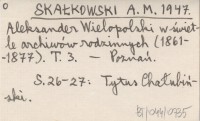 O
SKAŁKOWSKI A.M. 1947.
Aleksander Wielopolski w świet-
le archiwów rodzinnych (1861-
-1877). T. 3. — Poznań.
S. 26-27: Tytus Chałubiń-
ski.